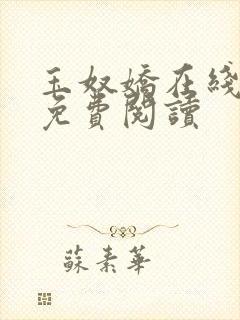 玉奴嬌在綫
免費閱讀
蘇素華